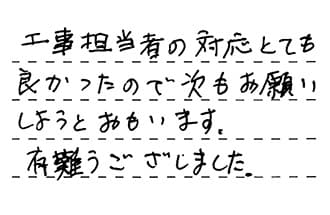 工事担当者の対応とても
良かったので次もお願い
しようとおもいます。
有難うござじました。